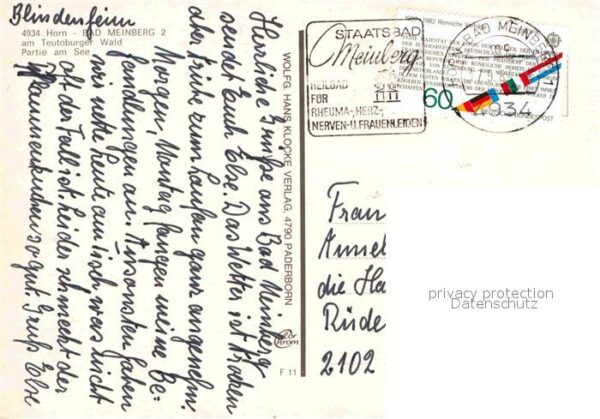 Blindenheim
4934 Horn - BAD MEINBERG 2
am Teutoburger Wald
Partie am See
Herzliche Grüße aus Bad Meinberg
sendet Euch Else. Das Wetter ist trocken
aber kühl, zum Laufen ganz angenehm.
Morgen, Montag fangen meine Be-
handlungen an. Ansonsten haben
wir heute am Tisch was nicht
oft der Fall ist. Leider schmeckt der
Pflaumenkuchen so gut. Gruß Else
WOLFG. HANS KLOCKE VERLAG, 4790 PADERBORN
Color
chrom
F 11
STAATSBAD
Meinberg
HEILBAD
FÜR
RHEUMA-, HERZ-,
NERVEN- U. FRAUENLEIDEN
1982 Römische
60
BAD MEINBERG
4934
DEUTSCHE BUNDESPOST
Frau
Annel
die He
Rüde
2102
privacy protection
Datenschutz